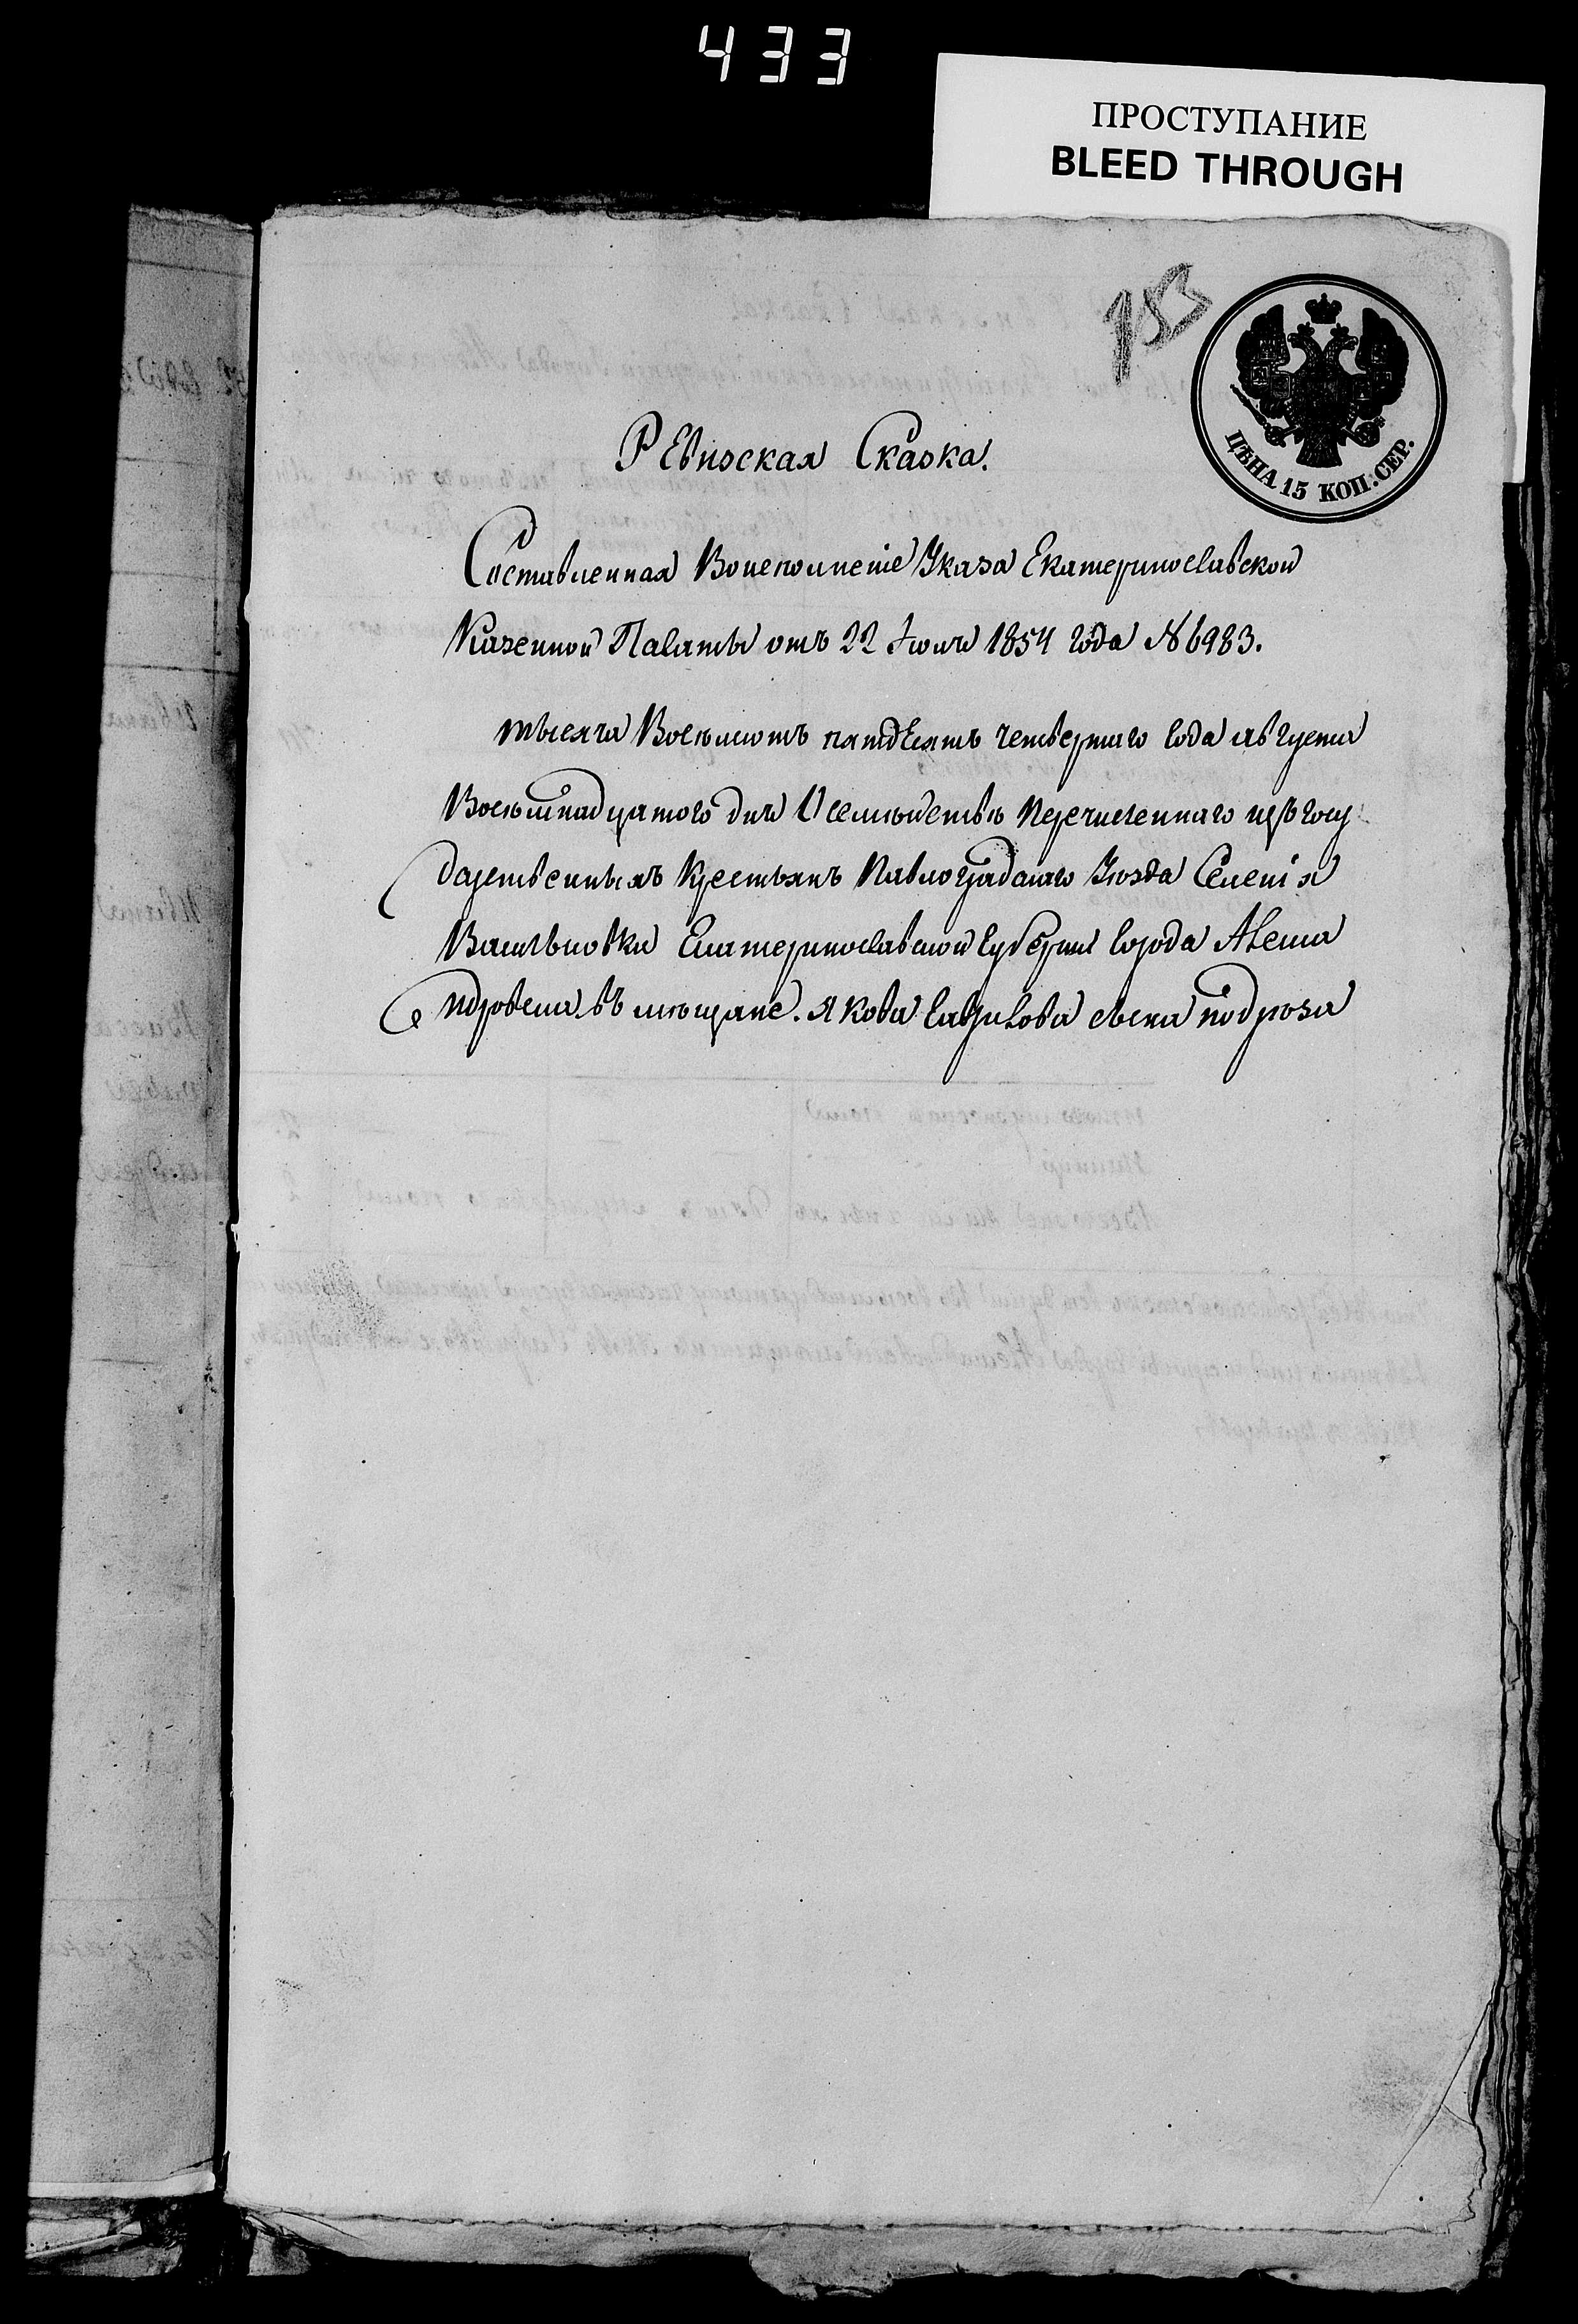 433
ПРОСТУПАНИЕ
BLEED THROUGH
753
ЦѢНА 15 КОП: СЕР.
Ревизская Сказка.
Составленная Воисполнение Указа Екатеринославской
Казенной Палаты отъ 22 Iюля 1854 года № 6983.
тысяча Восемьсотъ пятдесятъ четвертаго года августа
Восьмнадцатого дня О семьействѣ Перечисленнаго изъ госу
дарственныхъ Крестьянъ Павлоградскаго Уѣзда Селенiя
Васильковки Екатеринославской Губернiи города Алекса
ндровска въ мѣщане. Якова Гаврилова сына подроза